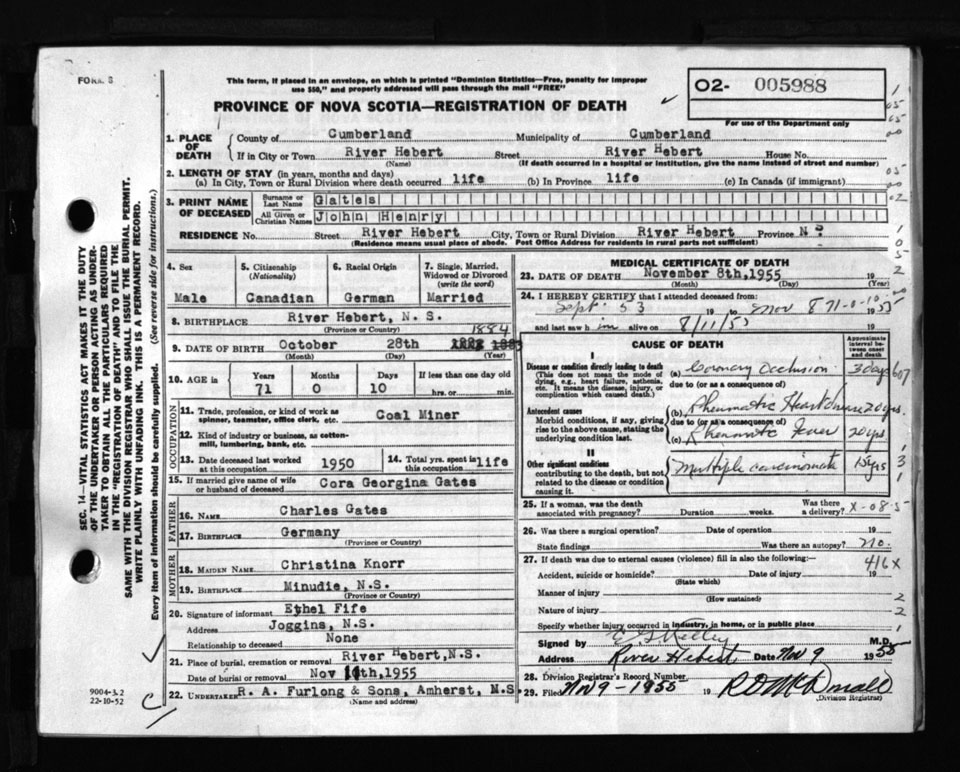 FORM 8
This form, if placed in an envelope, on which is printed "Dominion Statistics—Free, penalty for improper
use $50," and properly addressed will pass through the mail "FREE"
PROVINCE OF NOVA SCOTIA—REGISTRATION OF DEATH
02- 005988
For use of the Department only
1. PLACE OF DEATH County of Cumberland Municipality of Cumberland
If in City or Town River Hebert Street River Hebert House No.
(Name) (If death occurred in a hospital or institution, give the name instead of street and number)
2. LENGTH OF STAY (in years, months and days)
(a) In City, Town or Rural Division where death occurred life (b) In Province life (c) In Canada (if immigrant)
3. PRINT NAME OF DECEASED Surname or Last Name Gates
All Given or Christian Names John Henry
RESIDENCE No. Street River Hebert City, Town or Rural Division River Hebert Province N S
(Residence means usual place of abode. Post Office Address for residents in rural parts not sufficient)
4. Sex 5. Citizenship (Nationality) 6. Racial Origin 7. Single, Married, Widowed or Divorced (write the word)
Male Canadian German Married
8. BIRTHPLACE River Hebert, N. S.
(Province or Country)
1884
9. DATE OF BIRTH October 28th
(Month) (Day) (Year)
10. AGE in Years Months Days If less than one day old
71 0 10 hrs. or min.
OCCUPATION
11. Trade, profession, or kind of work as spinner, teamster, office clerk, etc. Coal Miner
12. Kind of industry or business, as cotton-mill, lumbering, bank, etc.
13. Date deceased last worked at this occupation 1950 14. Total yrs. spent in this occupation life
15. If married give name of wife or husband of deceased Cora Georgina Gates
FATHER
16. NAME Charles Gates
17. BIRTHPLACE Germany
(Province or Country)
MOTHER
18. MAIDEN NAME Christina Knorr
19. BIRTHPLACE Minudie, N.S.
(Province or Country)
20. Signature of informant Ethel Fife
Address Joggins, N.S.
Relationship to deceased None
21. Place of burial, cremation or removal River Hebert, N.S.
Date of burial or removal Nov th, 1955
22. UNDERTAKER R. A. Furlong & Sons, Amherst, N.S
(Name and address)
MEDICAL CERTIFICATE OF DEATH
23. DATE OF DEATH November 8th, 1955 19
(Month) (Day) (Year)
24. I HEREBY CERTIFY that I attended deceased from:
Sept 53 19 to Nov 8 71-0-10 1955
and last saw him alive on 8/11/55 19
CAUSE OF DEATH
Approximate interval between onset and death
I
Disease or condition directly leading to death
(This does not mean the mode of dying, e.g., heart failure, asthenia, etc. It means the disease, injury, or complication which caused death.)
(a) Coronary Occlusion 3 days
due to (or as a consequence of)
Antecedent causes
Morbid conditions, if any, giving rise to the above cause, stating the underlying condition last.
(b) Rheumatic Heart disease 20 yrs.
due to (or as a consequence of)
(c) Rheumatic Fever 20 yrs
II
Other significant conditions
contributing to the death, but not related to the disease or condition causing it.
Multiple carcinomata
25. If a woman, was the death associated with pregnancy? Duration weeks. Was there a delivery? X-08-5
26. Was there a surgical operation? Date of operation 19
State findings Was there an autopsy? no.
27. If death was due to external causes (violence) fill in also the following: 416X
Accident, suicide or homicide? Date of injury 19
(State which)
Manner of injury
(How sustained)
Nature of injury
Specify whether injury occurred in industry, in home, or in public place
Signed by E S Kelley M.D.
Address River Hebert Date Nov 9 1955
28. Division Registrar's Record Number
29. Filed Nov 9-1955 19
(Division Registrar)
SEC. 14—VITAL STATISTICS ACT MAKES IT THE DUTY
OF THE UNDERTAKER OR PERSON ACTING AS UNDER-
TAKER TO OBTAIN ALL THE PARTICULARS REQUIRED
IN THE "REGISTRATION OF DEATH" AND TO FILE THE
SAME WITH THE DIVISION REGISTRAR WHO SHALL ISSUE THE BURIAL PERMIT.
WRITE PLAINLY WITH UNFADING INK. THIS IS A PERMANENT RECORD.
Every item of information should be carefully supplied. (See reverse side for instructions.)
9004-3.2
22-10-52